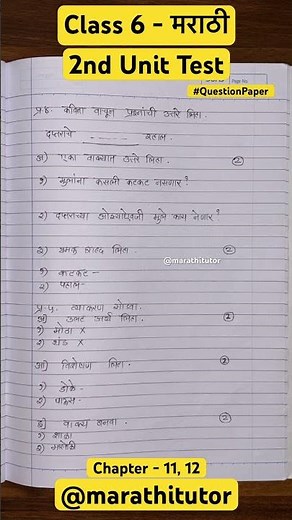 Class 6 - मराठी
2nd Unit Test
#QuestionPaper
Page No.
प्र-४. कविता वाचून प्रश्नांची उत्तरे लिहा.
दप्तराचे _ _ _ _ _
अ) एका वाक्यात उत्तरे लिहा. (2)
१) मुलांना कसली कटकट नसणार?
२) दप्तराच्या ओझ्याऐवजी मुले काय नेणार?
३) यमक शब्द लिहा. (2)
@marathitutor
१) कटकट -
२)
प्र-५. व्याकरण सोडवा.
अ) उलट अर्थ लिहा. (2)
१) मोठा ×
२) थंड ×
आ) विशेषण लिहा. (2)
१) डोके.
२) पाऊस.
इ) वाक्य बनवा. (2)
१) शाळा
२)
Chapter - 11, 12
@marathitutor